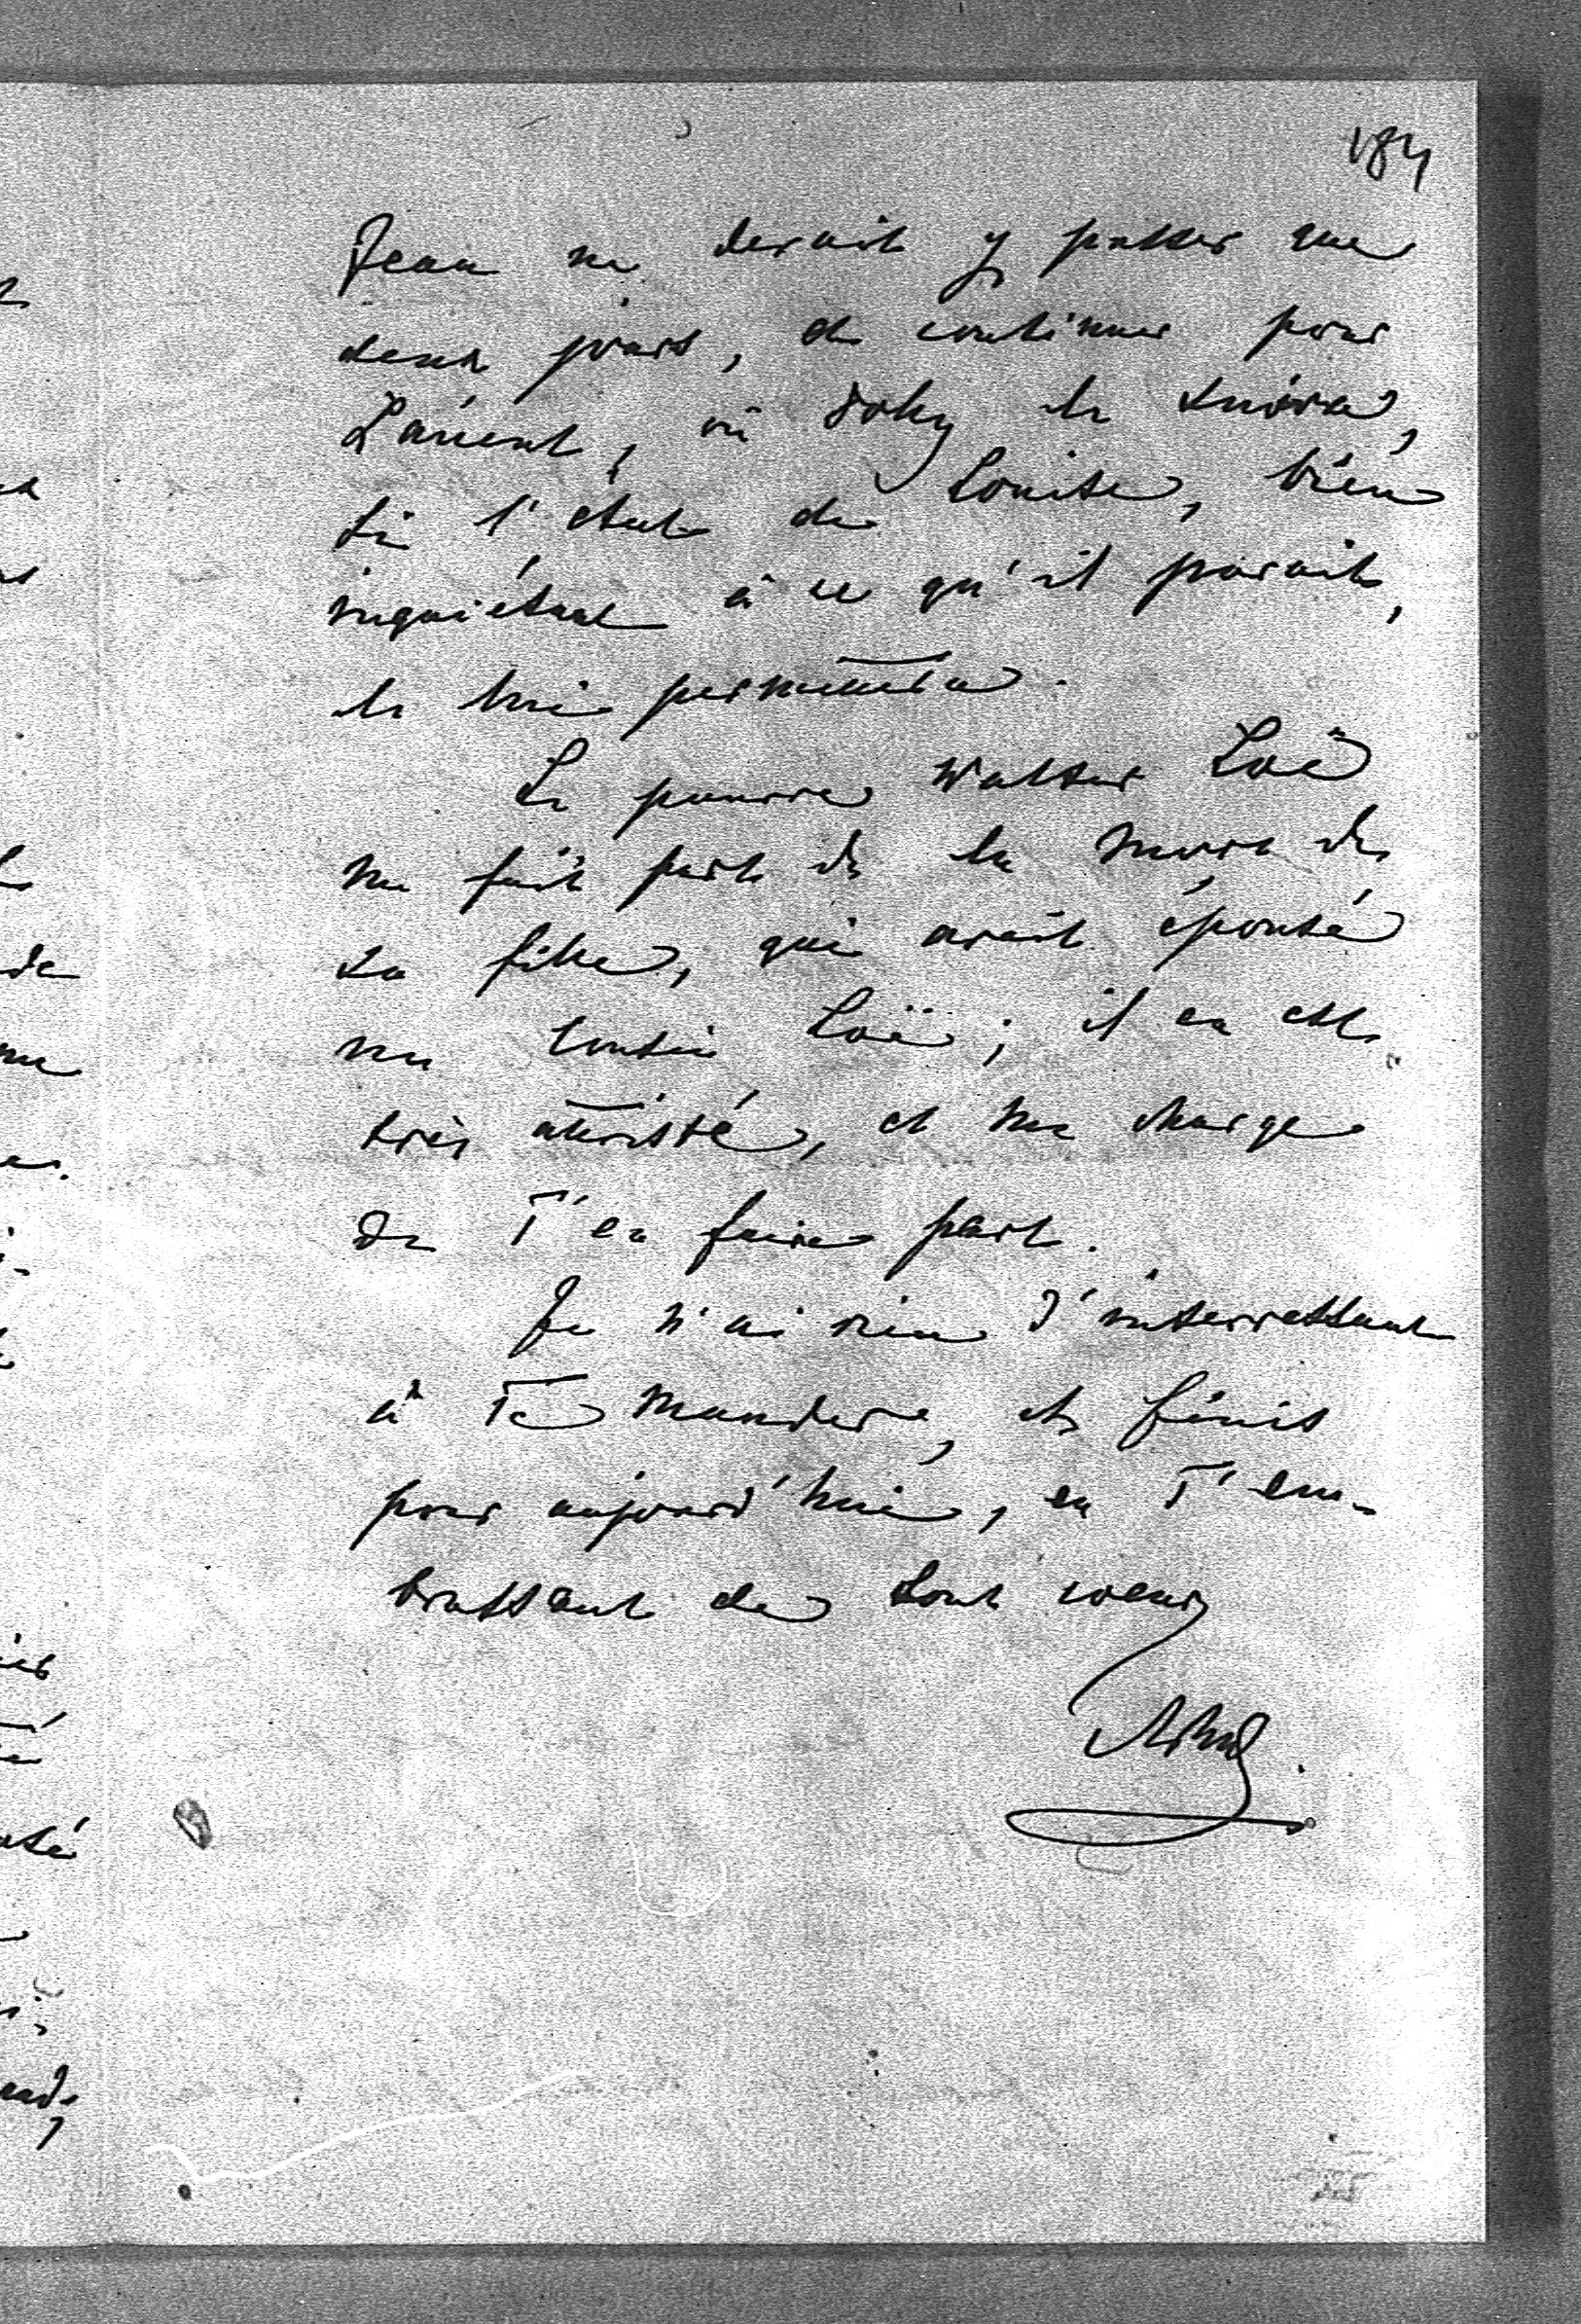 184
Jean ne devait y passer que
deux jours, et continuer pour
Lanient, où Doky le suivra,
si l'état de Louise, bien
inquiétant à ce qu'il parait,
le lui permettra.
Le pauvre Walter Loë
me fait part de la mort de
sa fille, qui avait épousé
un cousin Loë; il en est
très attristé, et me charge
de T'en faire part.
Je n'ai rien d'interressant
à Te mander, et finis
pour aujourd'hui, en T'em-
brassant de tout coeur